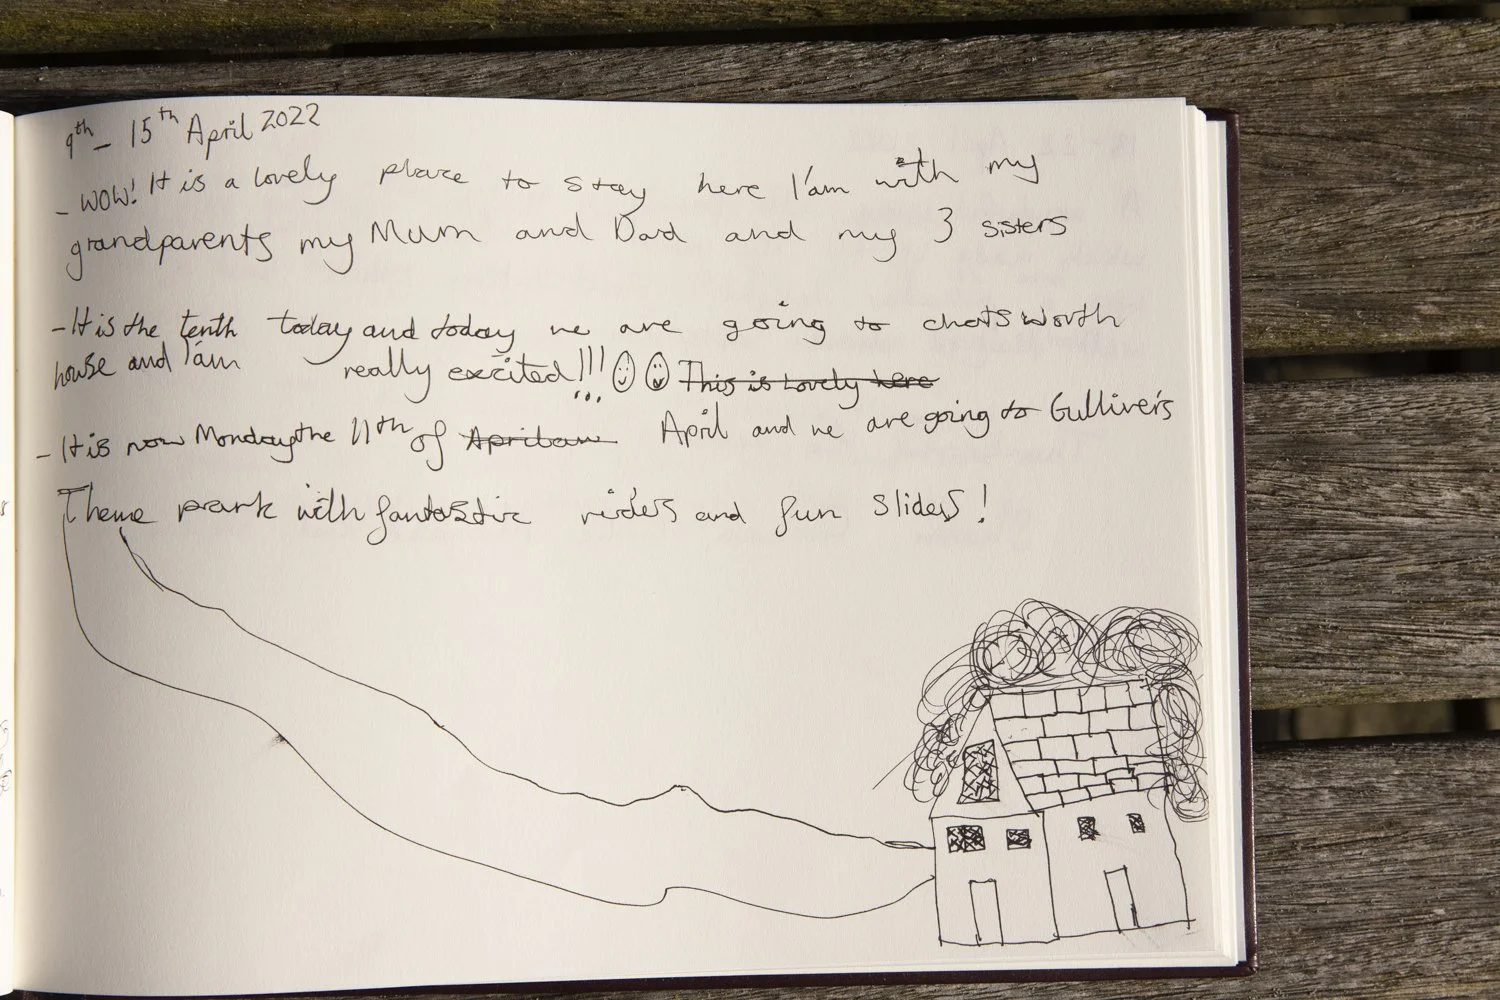 9th - 15th April 2022
- WOW! It is a lovely place to stay here I'am with my
grandparents my Mum and Dad and my 3 sisters
- It is the tenth today and today we are going to chatsworth
house and I'am really excited!!!... This is Lovely here
- It is now Monday the 11th of April and we are going to Gulliver's
Theme park with fantastic rider's and fun sliders!